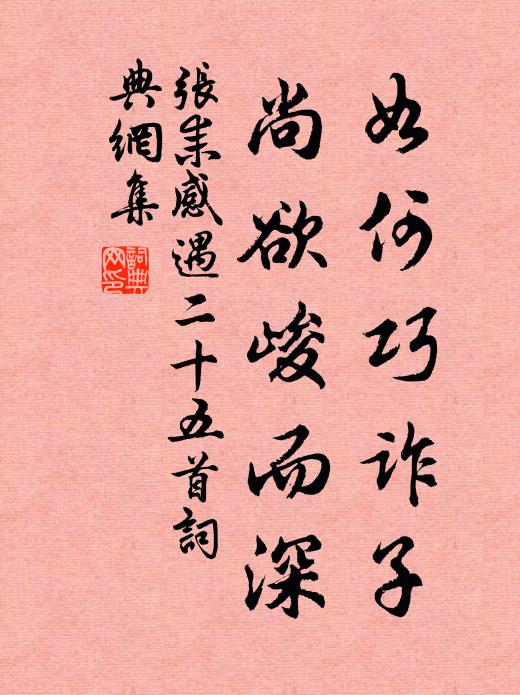 如何巧詐子
尚欲峻而深
張耒感遇二十五首詞
典網集
詞典網印